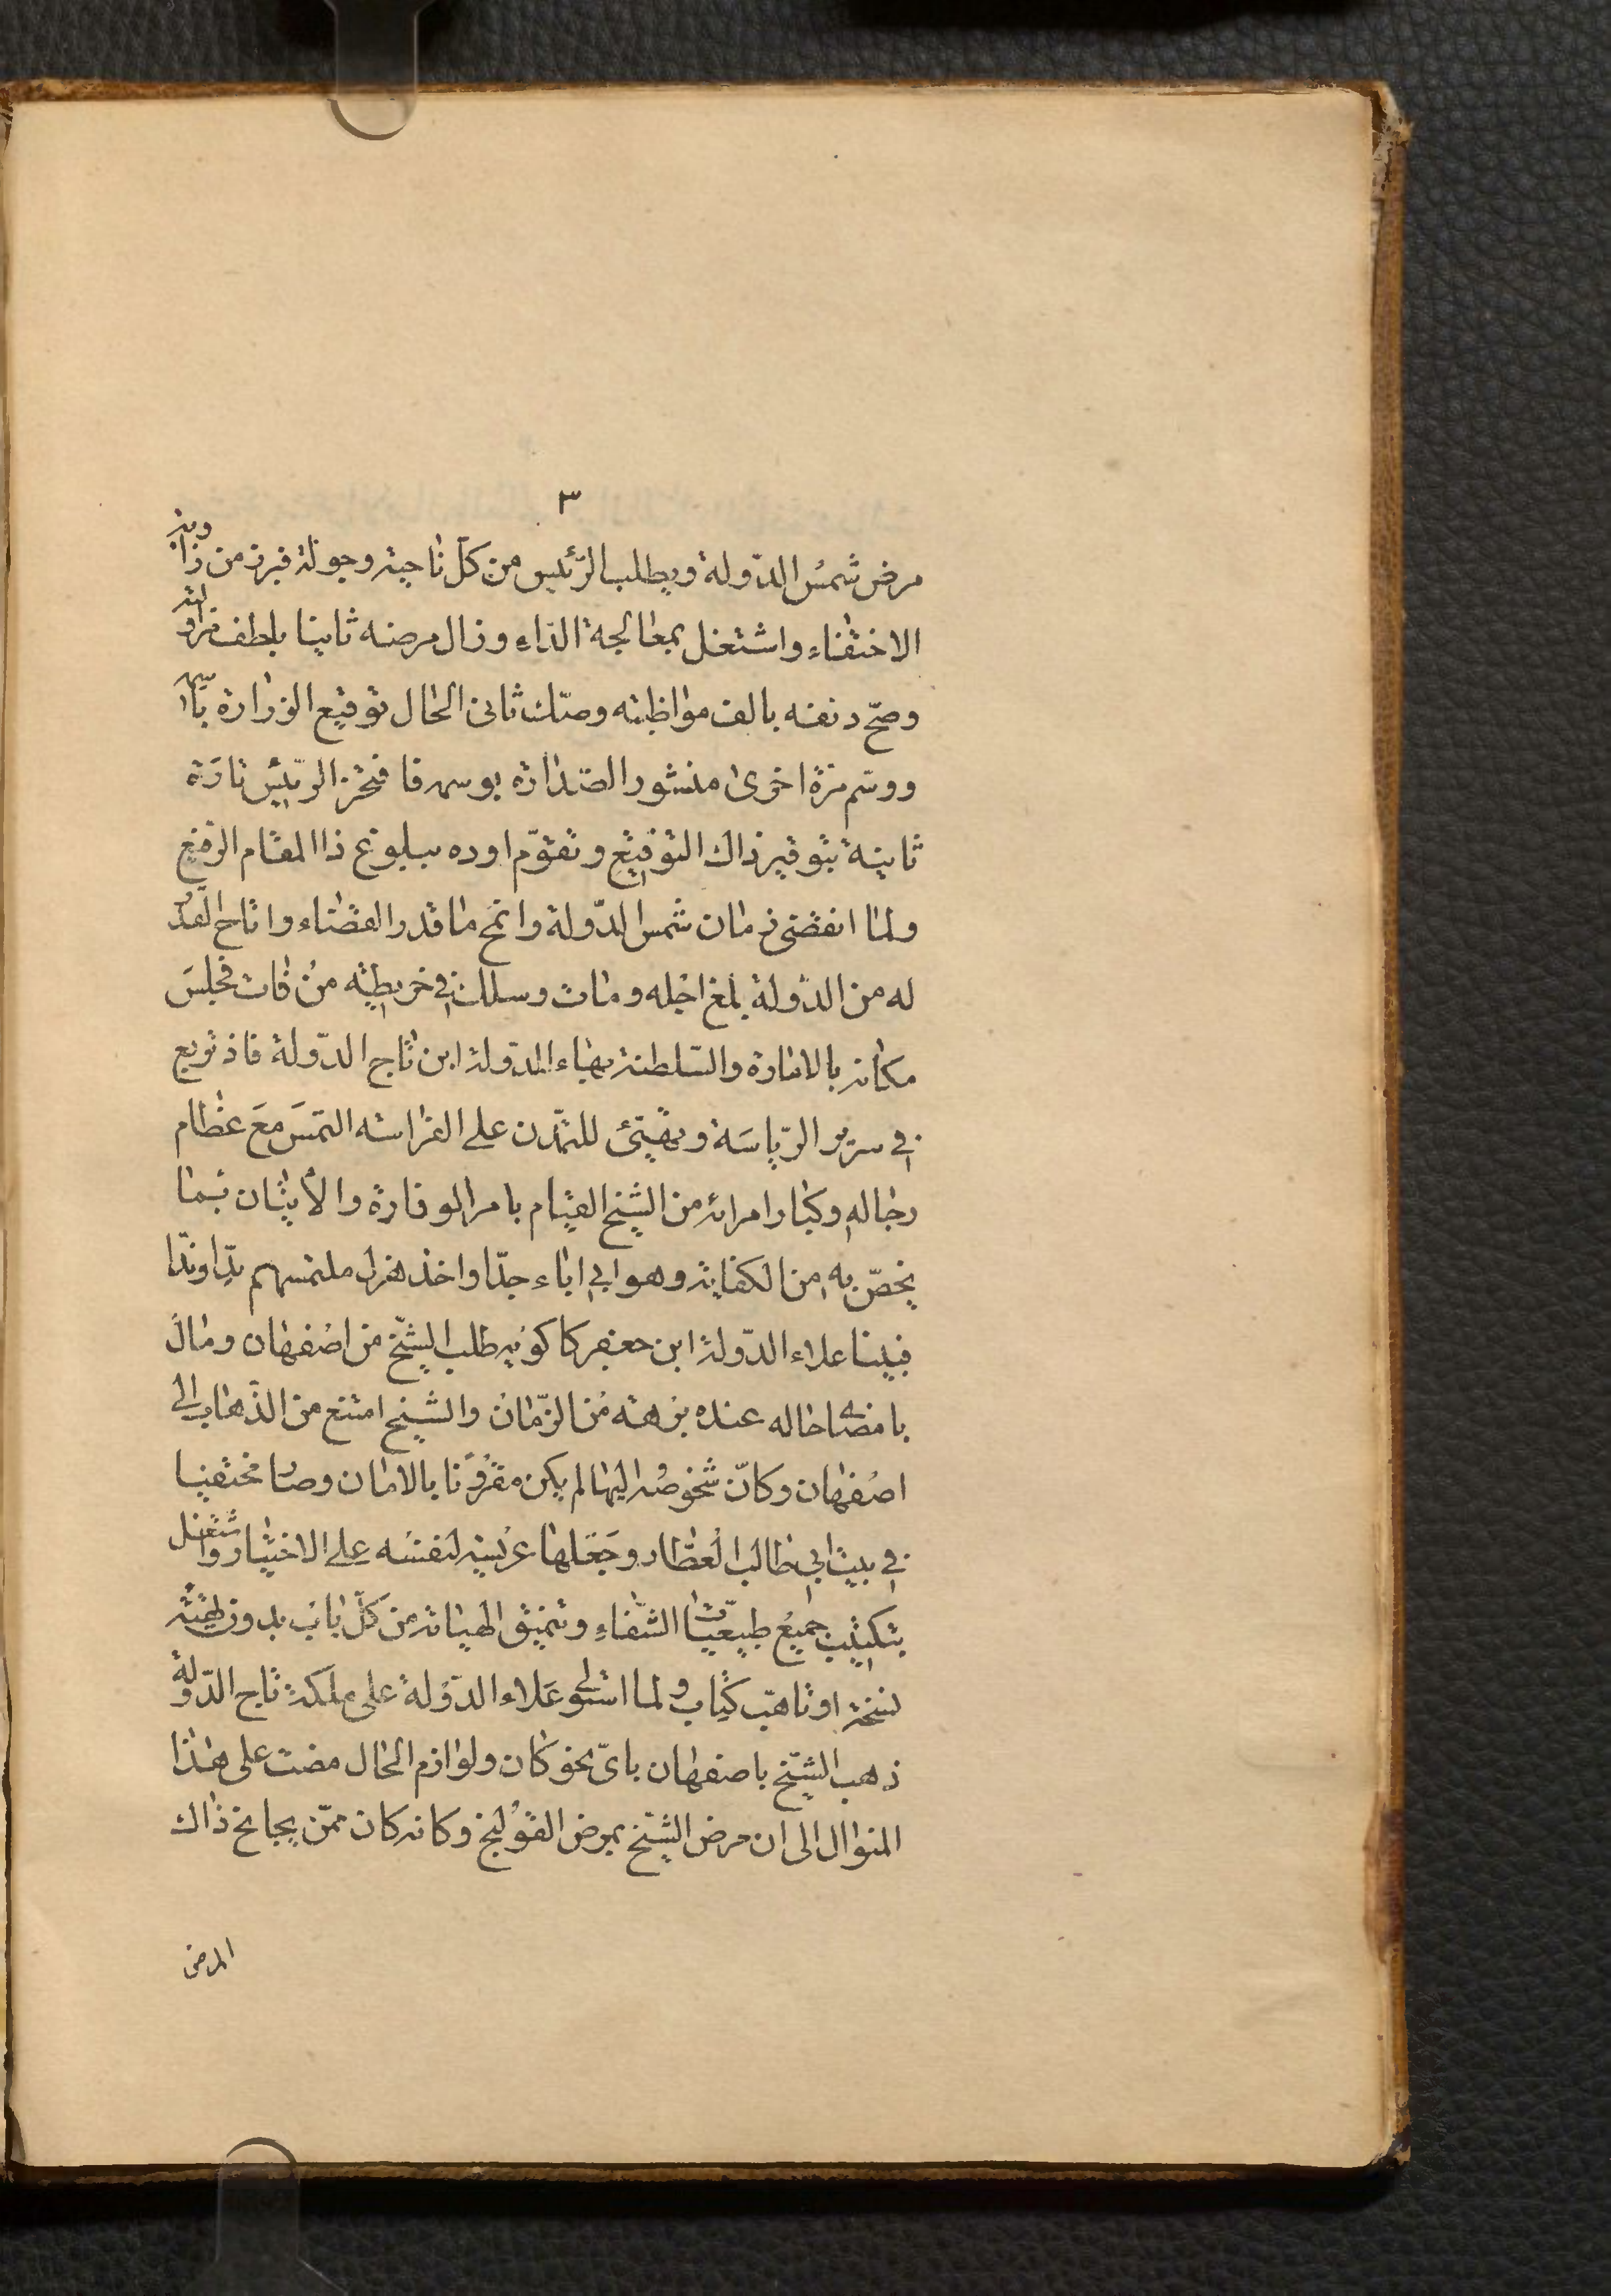 ٣
مرض شمس الدّولة ويطلب الرّئيس من كلّ ناحية وجولة فبرز من زاوية
الاختفاء واشتغل بمعالجة الدّاء وزال مرضه ثانيا بلطف مزاولته
وصحّ دنفه بالف مواظبته وصكّ ثانى الحال توقيع الوزارة باسمه
ووسّم مرّة اخرى منشور الصّدارة بوسمه فافتخر الرّئيس تارَة
ثانية بتوقير ذاك التوقيع وتقوّم اوده ببلوغ ذا المقام الرّفيع
ولمّا انقضى زمان شمس الدّولة وانمح ما قدر القضاء واتاح القدر
له من الدّولة بلغ اجله ومات وسلك في خريطة من فات فجلسَ
مكانه بالامارة والسّلطنة بهاء الدّولة ابن تاج الدّولة فاذ تربع
في سرير الرّياسَة وتهيّئ للتمدّن على الفراسة التمَسَ مَعَ عظام
رجاله وكبار امرائه من الشّيخ القيام بامر الوفارة والأيثان بما
يخصّ به من الكفاية وهو ابى اباء جدّا واخذ هزل ملتمسهم بدّا وندّا
فبينا علاء الدّولة ابن جعفر كاكويه طلب الشّيخ من اصفهان ومال
بامضاء حاله عنده برهة من الزّمان والشيخ امتنع من الذّهاب الى
اصفهان وكانّ شخوصه اليها لم يكن مقرُونا بالامان وصار مختفيا
في بيت ابي طالب العطّار وجَعَلها عريسة لنفسه على الاختيار واشتغل
بتكتيب جميع طبيعيّات الشّفاء وتنميق الهيات من كلّ باب بدون طمئنة
نسخة او تاهّب كتاب ولما استولى عَلاء الدّولة على مملكة تاج الدّولة
ذهب الشّيخ باصفهان باىّ نحو كان ولوازم الحال مضت على هذا
المنوال الى ان مرض الشّيخ بمرض القولنج وكانه كان ممّن يجامح ذاك
المرض